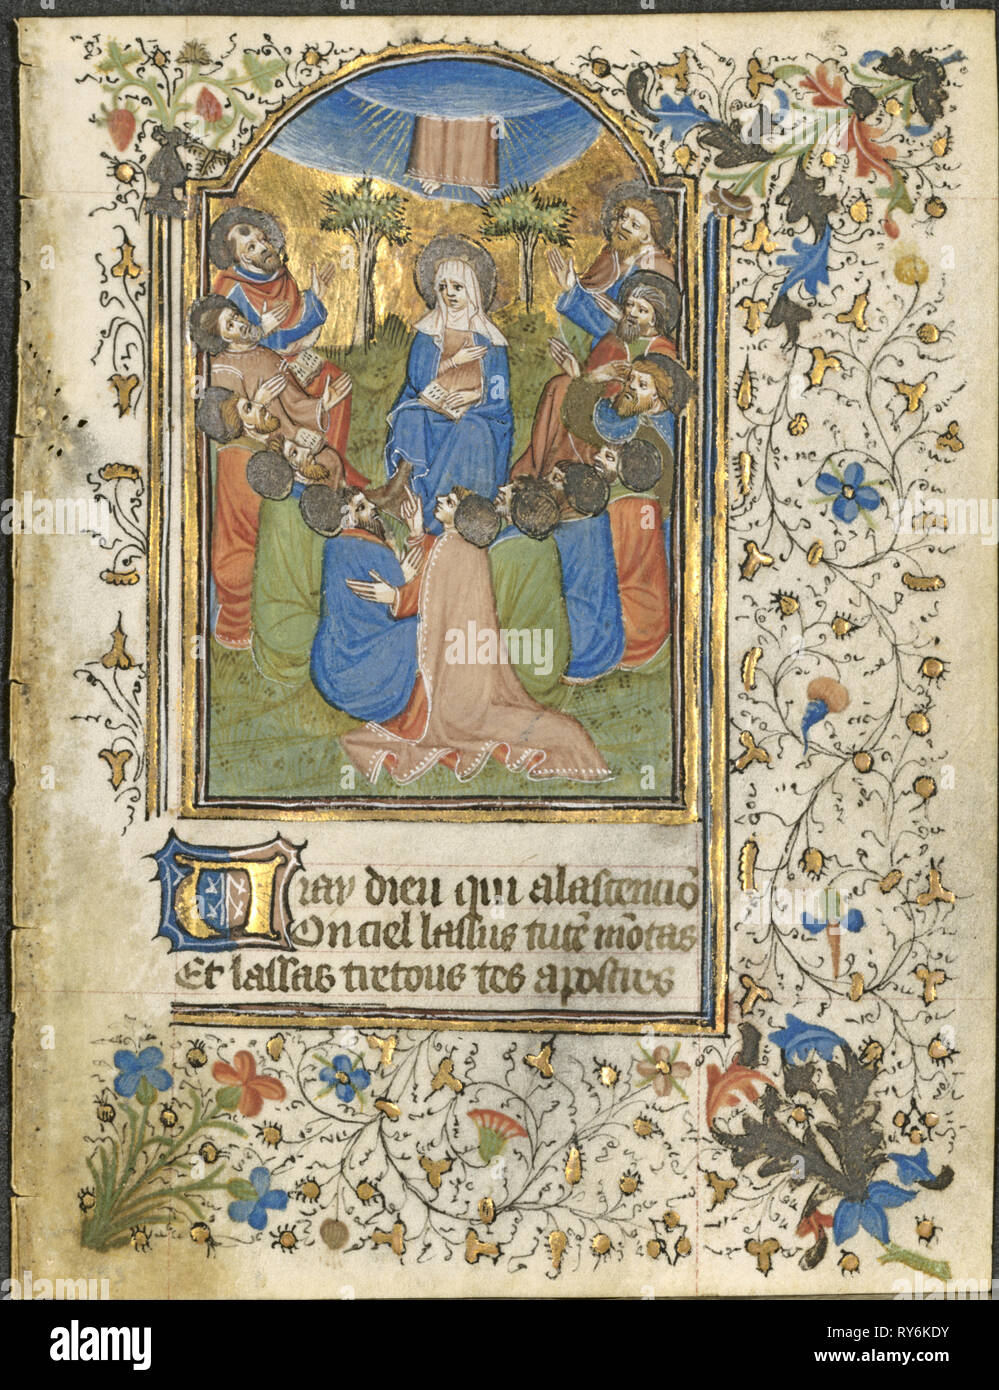 Uray dieu qui alascenciõ
On ciel lassus tute mõtas
Et lassas tretous tes apostres
alamy
Image ID: RY6KDY
www.alamy.com